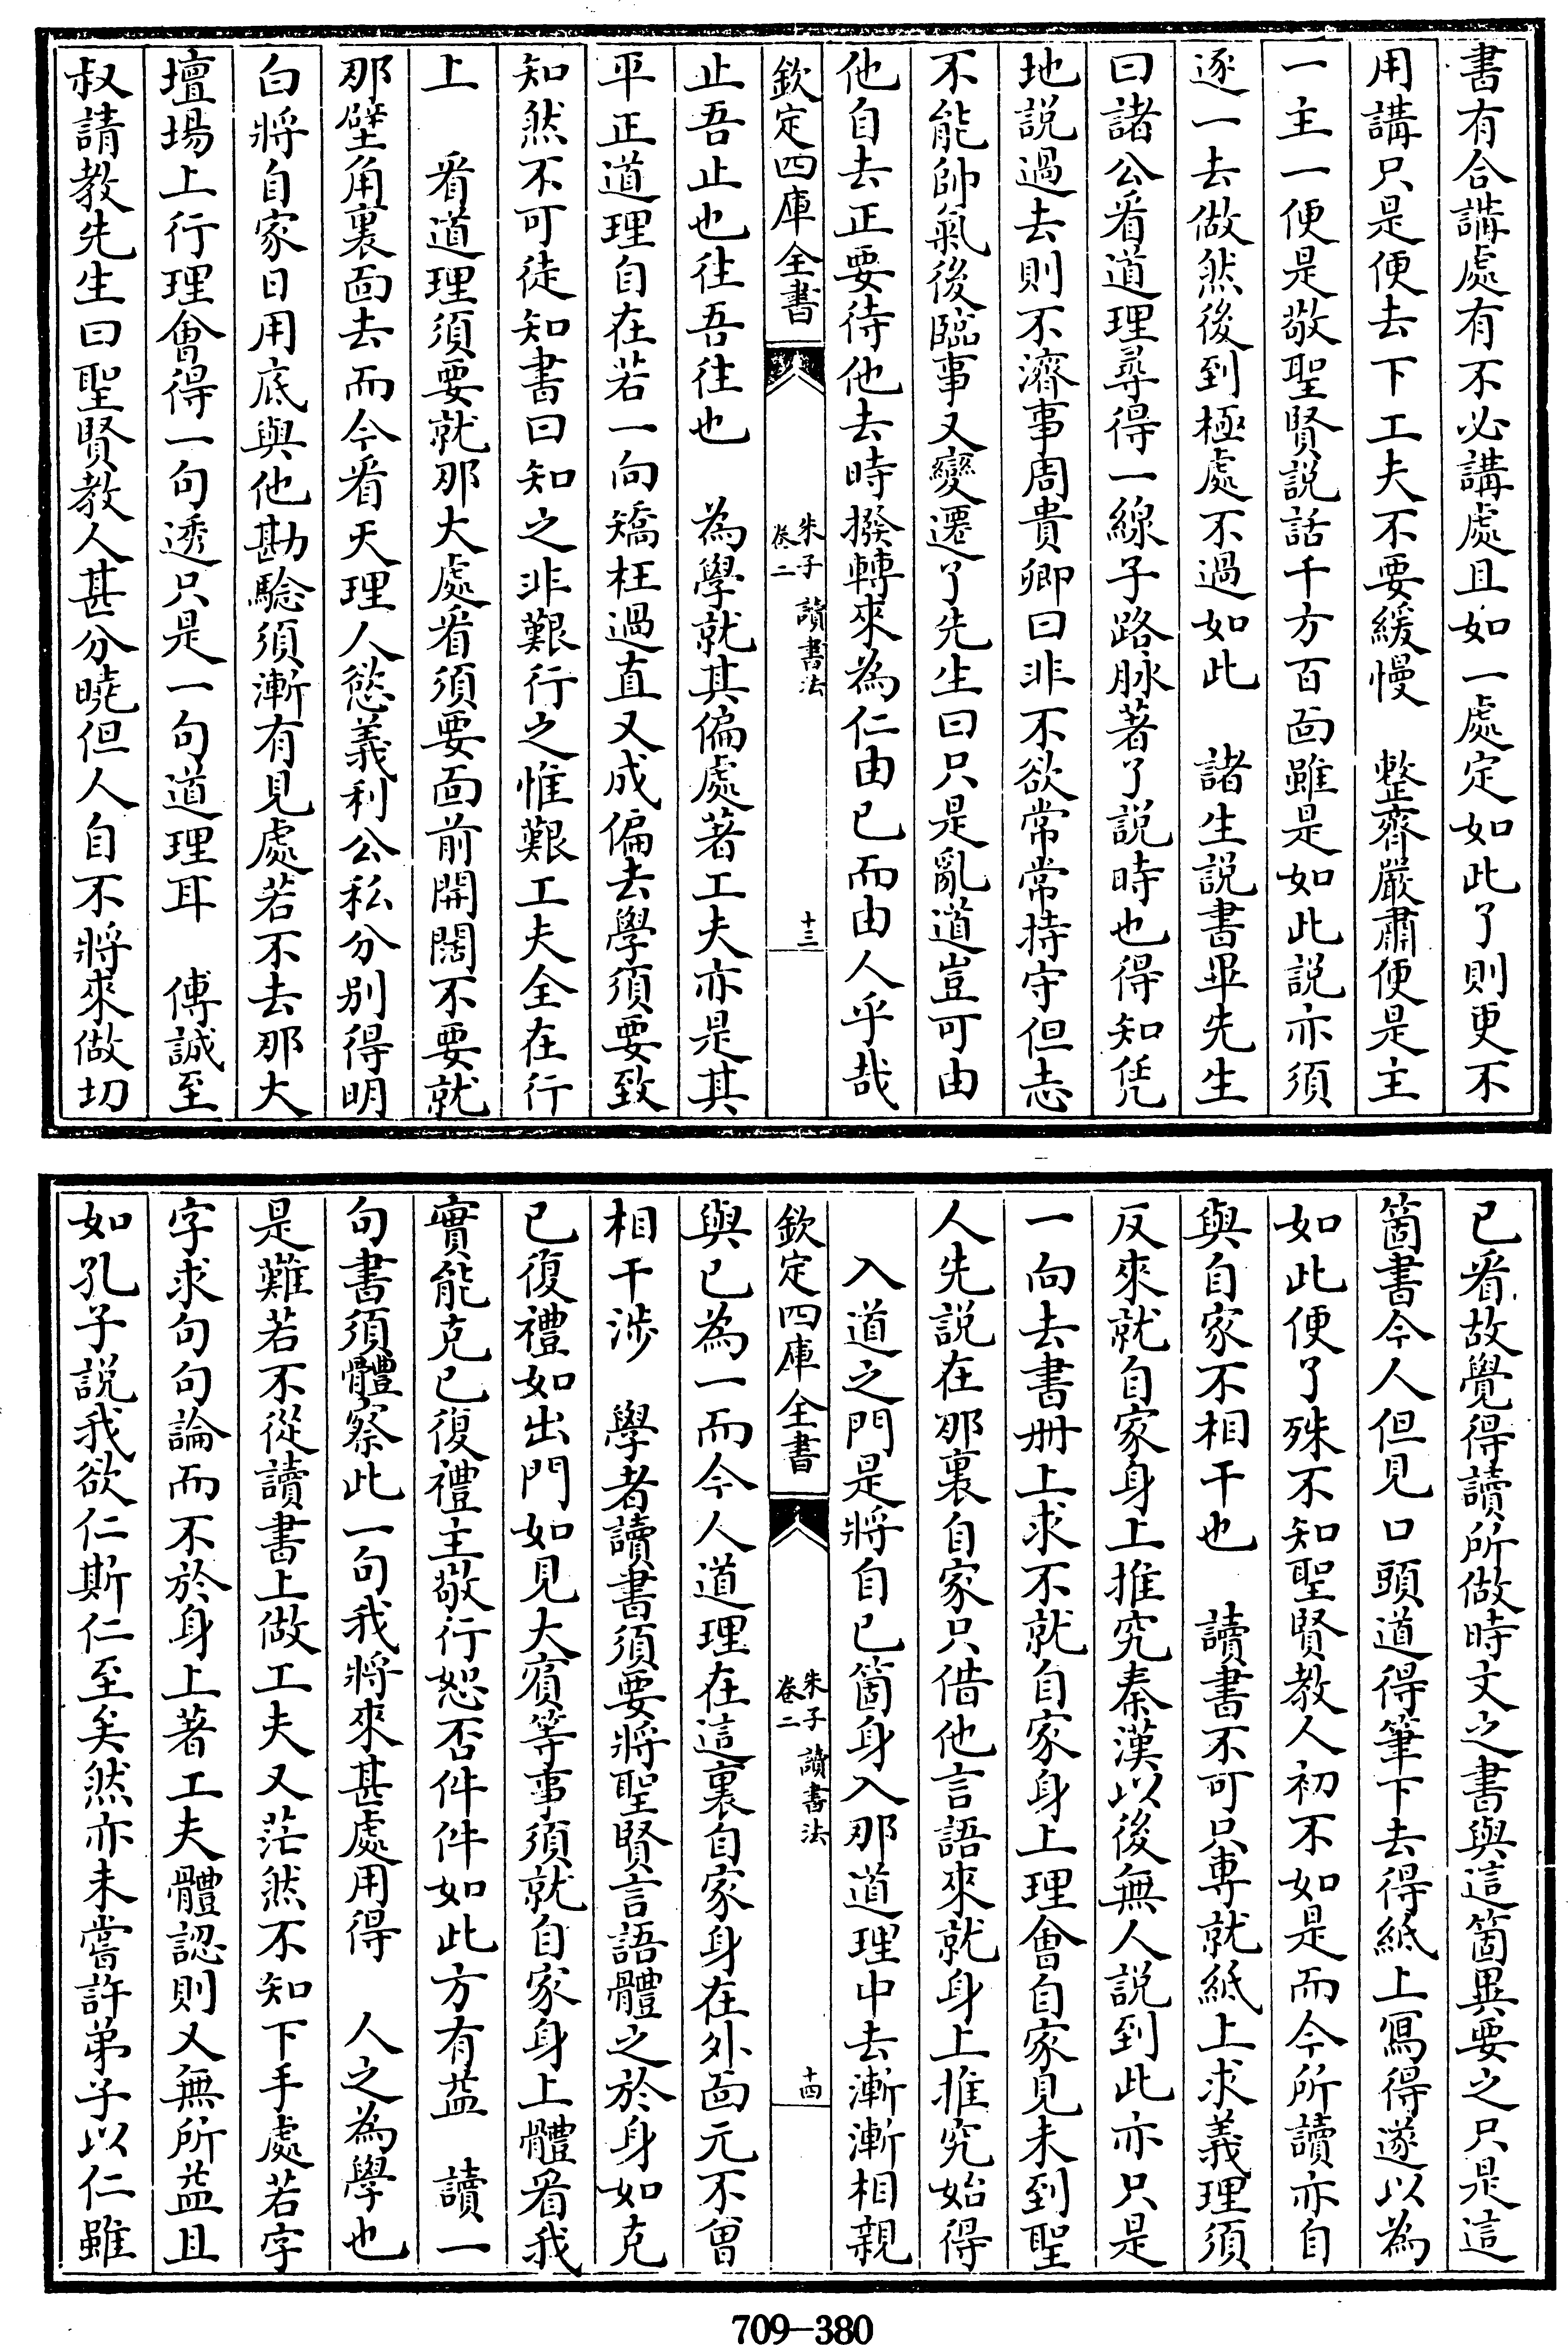 書有合講處有不必講處且如一處定如此了則更不
用講只是便去下工夫不要緩慢　整齊嚴肅便是主
一主一便是敬聖賢説話千方百面雖是如此説亦須
逐一去做然後到極處不過如此　諸生説書畢先生
曰諸公看道理尋得一線子路脉著了説時也得知凭
地説過去則不濟事周貴卿曰非不欲常常持守但志
不能帥氣後臨事又變遷了先生曰只是亂道豈可由
他自去正要待他去時撥轉來為仁由已而由人乎哉
欽定四庫全書　朱子讀書法　卷二　十三
止吾止也往吾往也　為學就其偏處著工夫亦是其
平正道理自在若一向矯枉過直又成偏去學須要致
知然不可徒知書曰知之非艱行之惟艱工夫全在行
上　看道理須要就那大處看須要面前開闊不要就
那壁角裏面去而今看天理人慾義利公私分别得明
白將自家日用底與他勘驗須漸有見處若不去那大
壇場上行理會得一句透只是一句道理耳　傅誠至
叔請教先生曰聖賢教人甚分曉但人自不將來做切
已看故覺得讀所做時文之書與這箇異要之只是這
箇書今人但見口頭道得筆下去得紙上寫得遂以為
如此便了殊不知聖賢教人初不如是而今所讀亦自
與自家不相干也　讀書不可只專就紙上求義理須
反來就自家身上推究秦漢以後無人説到此亦只是
一向去書册上求不就自家身上理會自家見未到聖
人先説在那裏自家只借他言語來就身上推究始得
入道之門是將自已箇身入那道理中去漸漸相親
欽定四庫全書　朱子讀書法　卷二　十四
與已為一而今人道理在這裏自家身在外面元不曾
相干涉　學者讀書須要將聖賢言語體之於身如克
已復禮如出門如見大賓等事須就自家身上體看我
實能克已復禮主敬行恕否件件如此方有益　讀一
句書須體察此一句我將來甚處用得　人之為學也
是難若不從讀書上做工夫又茫然不知下手處若字
字求句句論而不於身上著工夫體認則又無所益且
如孔子説我欲仁斯仁至矣然亦未嘗許弟子以仁雖
709-380